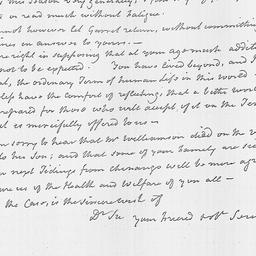 or read much without fatigue.
cannot however let Garret return, without committing
lines in answer to yours. —
are right in supposing that at your age much addit
not to be expected. You have lived beyond, and I
the ordinary Term of human Life in this world
have the Comfort of reflecting, that a better world
prepared for those who will accept of it on the Ter
is mercifully offered to us —
sorry to hear that Mr Williamson died on the
to his Son; and that some of your Family are
next Tidings from Chenango will be more
us of the Health and Welfare of you all —
the Case, is the sincere wish of
Dr Sr your friend & Serv